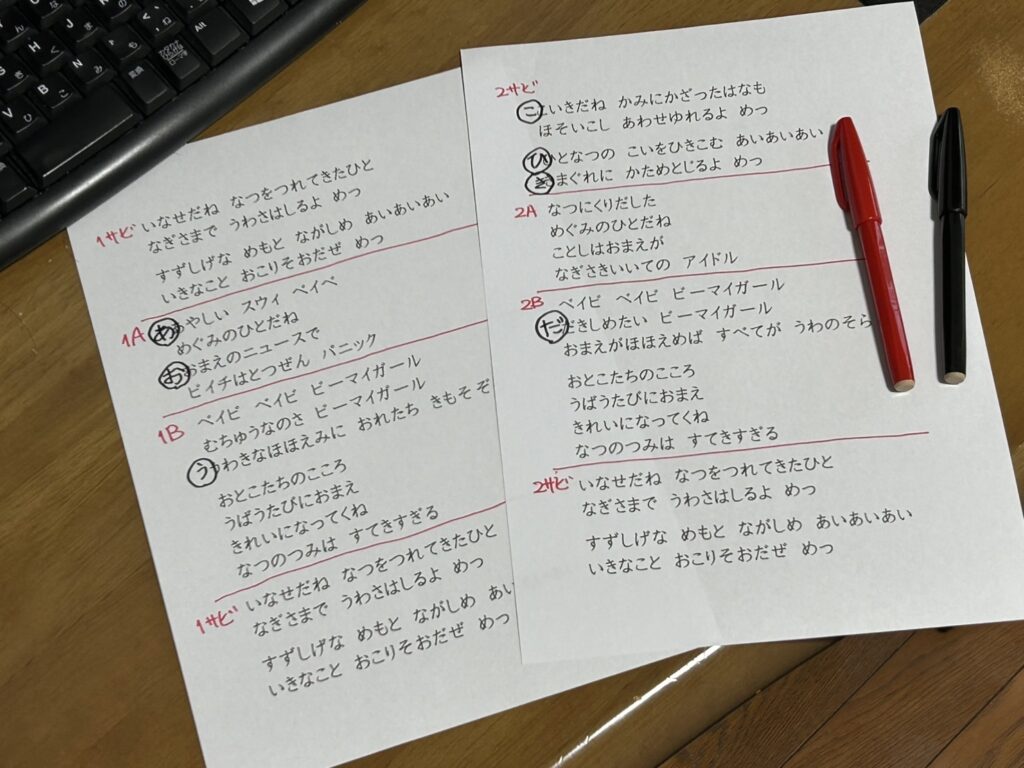 Alt
変換
1サビ いなせだね なつをつれてきたひと
なぎさまで うわさはしるよ めっ
すずしげな めもと ながしめ あいあいあい
いきなこと おこりそおだぜ めっ
1A あやしい スウィ ベイベ
めぐみのひとだね
おまえのニュースで
ビイチはとつぜん パニック
1B ベイビ ベイビ ビーマイガール
むちゆうなのさ ビーマイガール
うわきなほほえみに おれたち きもそ ぞ
おとこたちのこころ
うばうたびにおまえ
きれいになってくね
なつのつみは すてきすぎる
1サビ いなせだね なつをつれてきたひと
なぎさまで うわさはしるよ めっ
すずしげな めもと ながしめ あい
いきなこと おこりそおだぜ めっ
2サビ
こいきだね かみにかざったはなも
ほそいこし あわせゆれるよ めっ
ひとなつの こいをひきこむ あいあいあい
きまぐれに かためとじるよ めっ
2A なつにくりだした
めぐみのひとだね
ことしはおまえが
なぎさきいいての アイドル
2B ベイビ ベイビ ビーマイガール
だきしめたい ビーマイガール
おまえがほほえめば すべてが うわのそら
おとこたちのこころ
うばうたびにおまえ
きれいになってくね
なつのつみは すてきすぎる
2サビ いなせだね なつをつれてきたひと
なぎさまで うわさはしるよ めっ
すずしげな めもと ながしめ あいあいあい
いきなこと おこりそおだぜ めっ